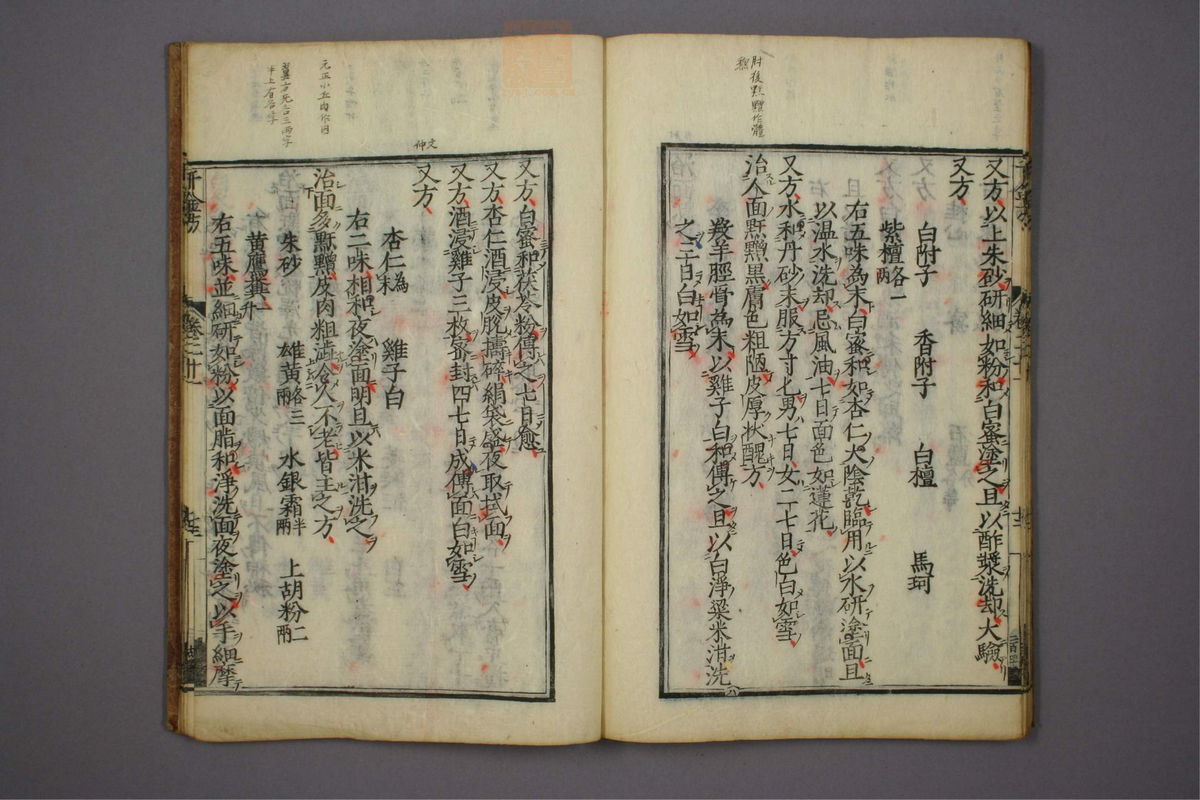 肘後䵟䵳作䵳
又方以上朱砂研細如粉和白蜜塗之旦以酢漿洗却大驗
又方
白附子 香附子 白檀 馬珂
紫檀各一兩
右五味為末白蜜和如杏仁大陰乾臨用以水研塗面旦
以溫水洗却忌風油七日面色如蓮花
又方水和丹砂末服方寸匕男七日女二七日色白如雪
治人面䵟䵳黑膚色粗陋皮厚狀醜方
羖羊脛骨為末以雞子白和傅之旦以白淨粱米泔洗
之三日白如雪
又方白蜜和茯苓粉傅之七日愈
又方杏仁酒浸皮脫擣碎絹袋盛夜取拭面
又方酒浸雞子三枚密封四七日成傅面白如雪
又方
杏仁為末 雞子白
右二味相和夜塗面明旦以米泔洗之
治面多䵟䵳皮肉粗澁令人不老皆主之方
朱砂 雄黃各三兩 水銀霜半兩 上胡粉二兩
黃鷹糞一升
右五味並細研如粉以面脂和淨洗面夜塗之以手細摩